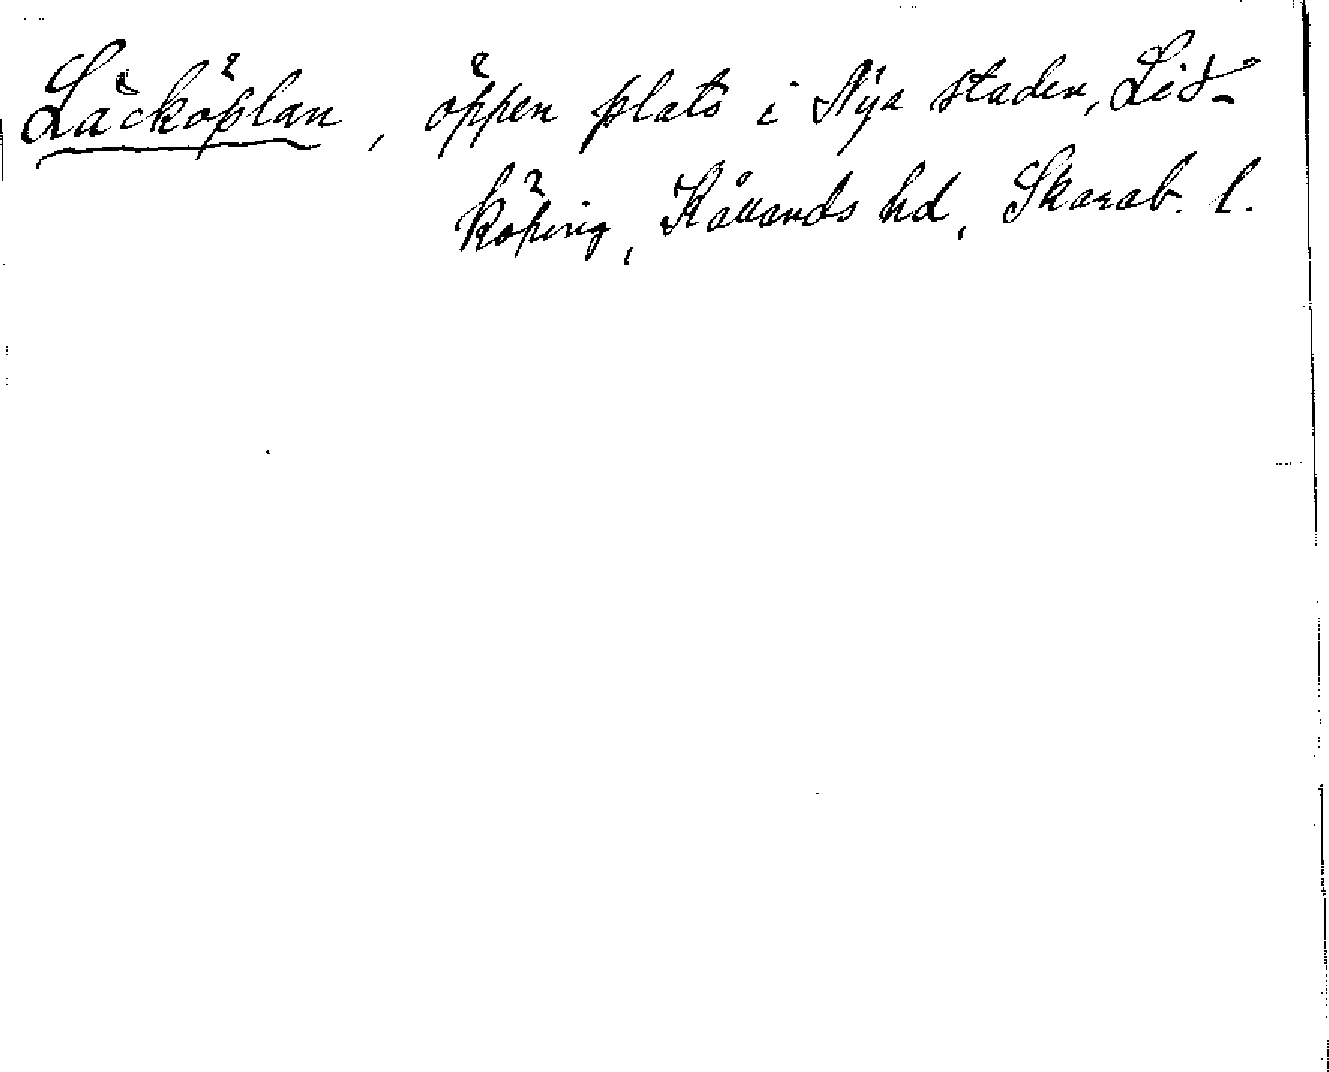 Läcköplan, öppen plats i Nya staden, Lid-
köping, Kållands hd, Skarab. l.